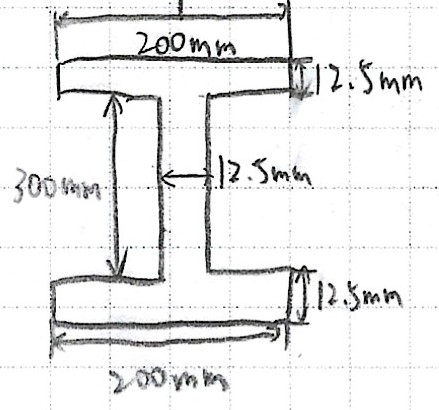 200mm
12.5mm
300mm
12.5mm
12.5mm
200mm